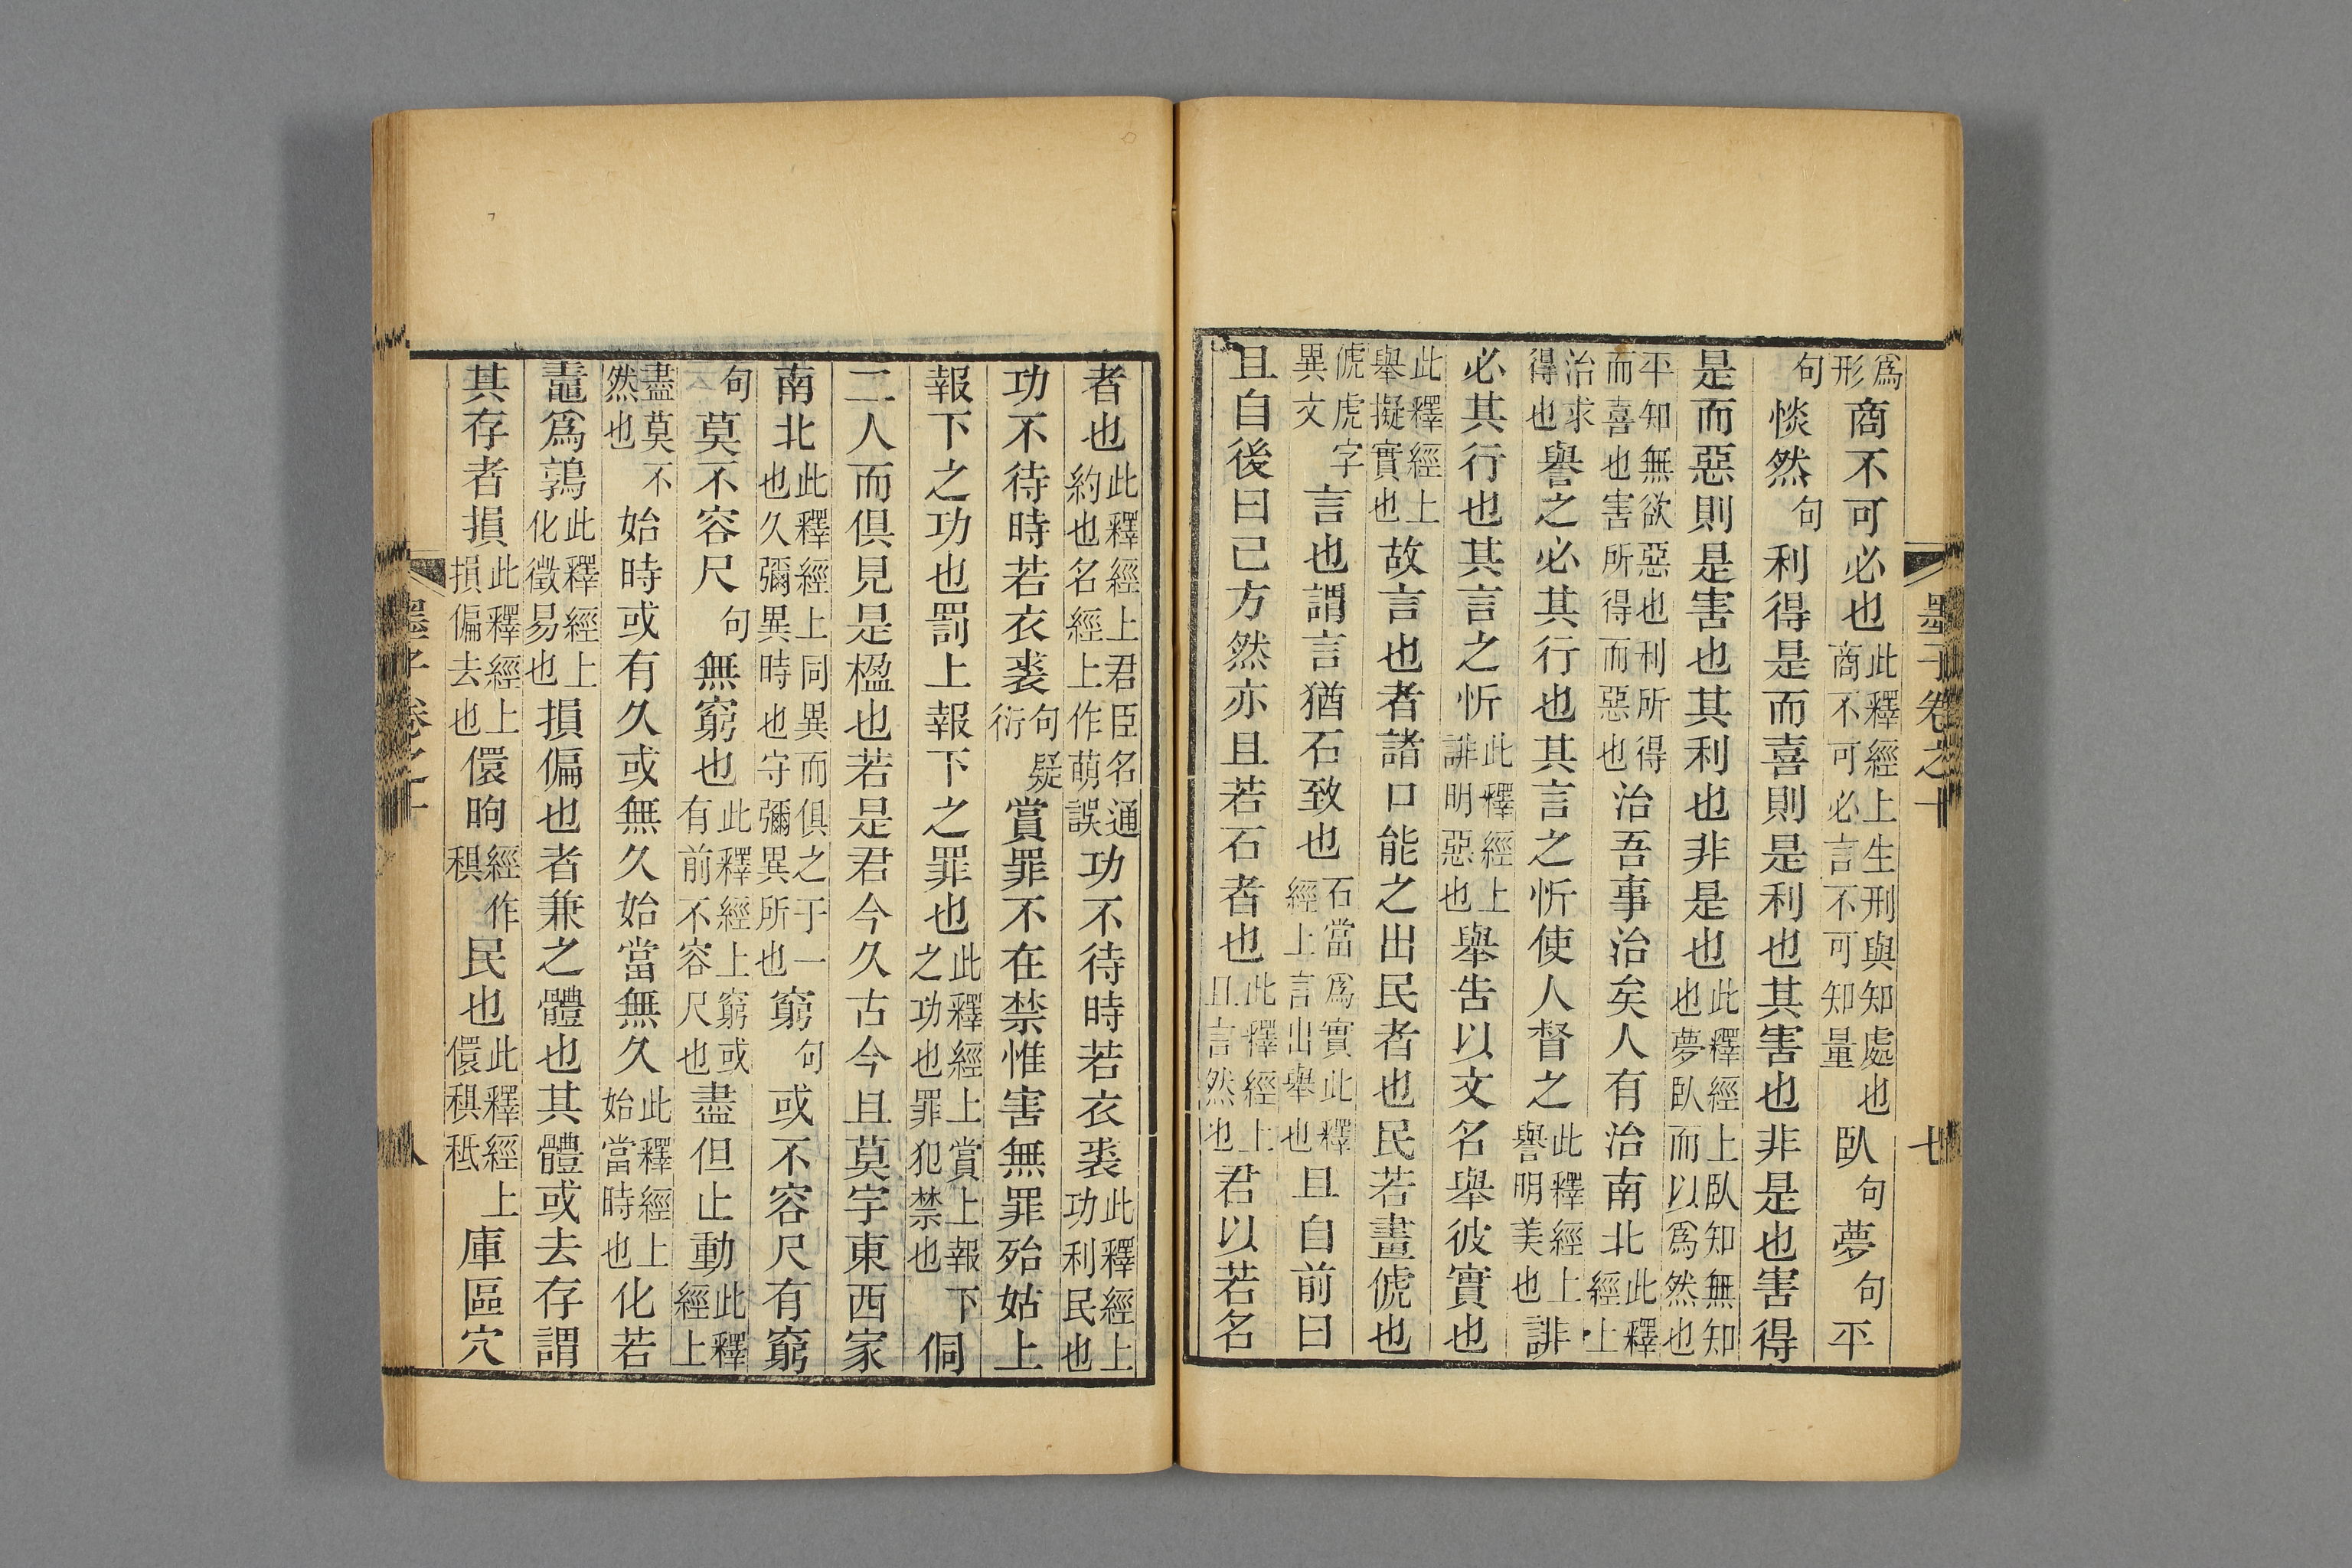 墨子卷之十
七
爲形商不可必也此釋經上生刑與知處也商不可必言不可知量臥句夢句平
句惔然句利得是而喜則是利也其害也非是也害得
是而惡則是害也其利也非是也此釋經上臥知無知也夢臥而以爲然也
平知無欲惡也利所得而喜也害所得而惡也治吾事治矣人有治南北此釋經上
治求得也譽之必其行也其言之忻使人督之此釋經上譽明美也誹
必其行也其言之忻此釋經上誹明惡也舉告以文名舉彼實也
此釋經上舉擬實也故言也者諸口能之出民者也民若畫俿也
俿虎字異文言也謂言猶石致也石當爲實此釋經上言出舉也且自前曰
且自後曰己方然亦且若石者也此釋經上且言然也君以若名
者也此釋經上君臣名通約也名經上作萌誤功不待時若衣裘此釋經上功利民也
功不待時若衣裘句疑衍賞罪不在禁惟害無罪殆姑上
報下之功也罰上報下之罪也此釋經上賞上報下之功也罪犯禁也侗
二人而俱見是楹也若是君今久古今且莫宇東西家
南北此釋經上同異而俱之于一也久彌異時也守彌異所也窮句或不容尺有窮
句莫不容尺句無窮也此釋經上窮或有前不容尺也盡但止動此釋經上
盡莫不然也始時或有久或無久始當無久此釋經上始當時也化若
鼃爲鶉此釋經上化徵易也損偏也者兼之體也其體或去存謂
其存者損此釋經上損偏去也儇昫經作䅡民也此釋經上儇䅡秪庫區穴
墨子卷之十
八